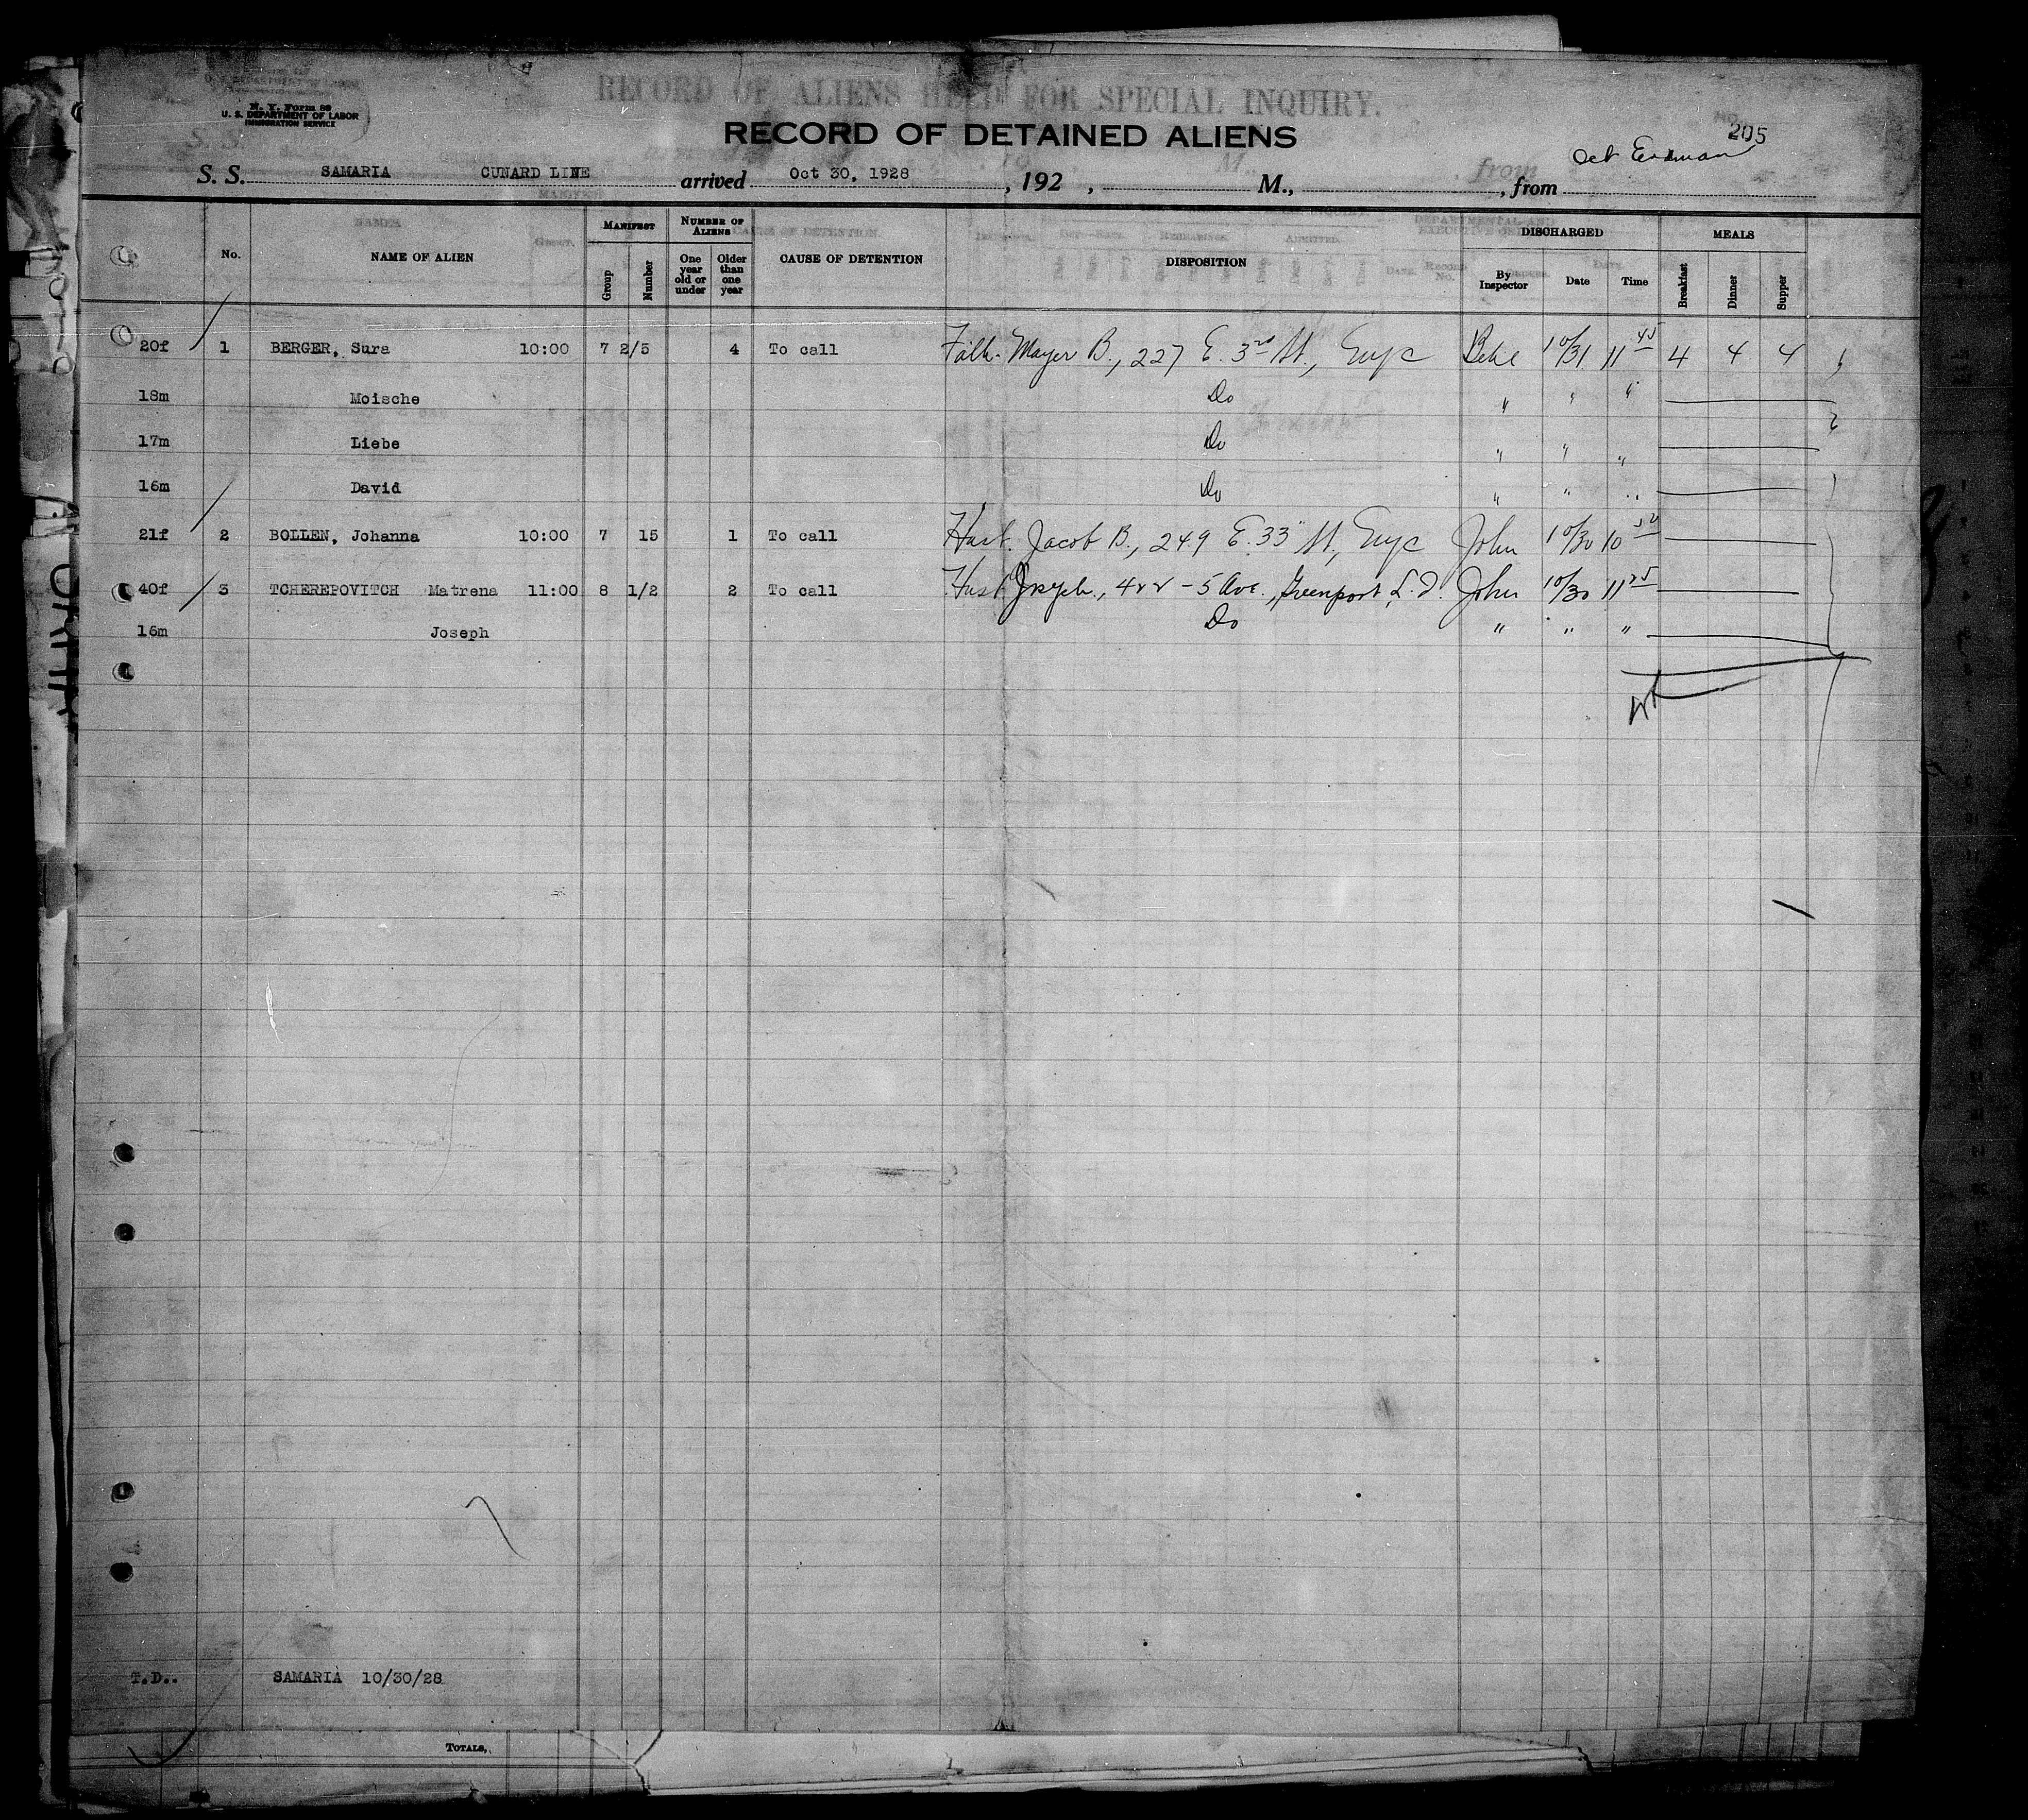 RECORD OF ALIENS HELD FOR SPECIAL INQUIRY.
N. Y. Form 89
U. S. DEPARTMENT OF LABOR
IMMIGRATION SERVICE
RECORD OF DETAINED ALIENS
205
S. S. SAMARIA CUNARD LINE arrived Oct 30, 1928, 192 , M., , from
No. NAME OF ALIEN MANIFEST Group Number NUMBER OF ALIENS One year old or under Older than one year CAUSE OF DETENTION DISPOSITION DISCHARGED By Inspector Date Time MEALS Breakfast Dinner Supper
20f 1 BERGER, Sura 10:00 7 2/5 4 To call Fath. Mayer B., 227 E. 3rd St., 10/31 11 45 4 4 4
18m Moische Do " " "
17m Liebe Do " " "
16m David Do " " "
21f 2 BOLLEN, Johanna 10:00 7 15 1 To call Husb. Jacob B., 249 E. 33" St, John 10/30 10
40f 3 TCHEREPOVITCH Matrena 11:00 8 1/2 2 To call Husb Joseph, 422 - 5 Ave., Greenport, L.I. John 10/30 11 25
16m Joseph Do " " "
T.D.. SAMARIA 10/30/28
TOTALS,